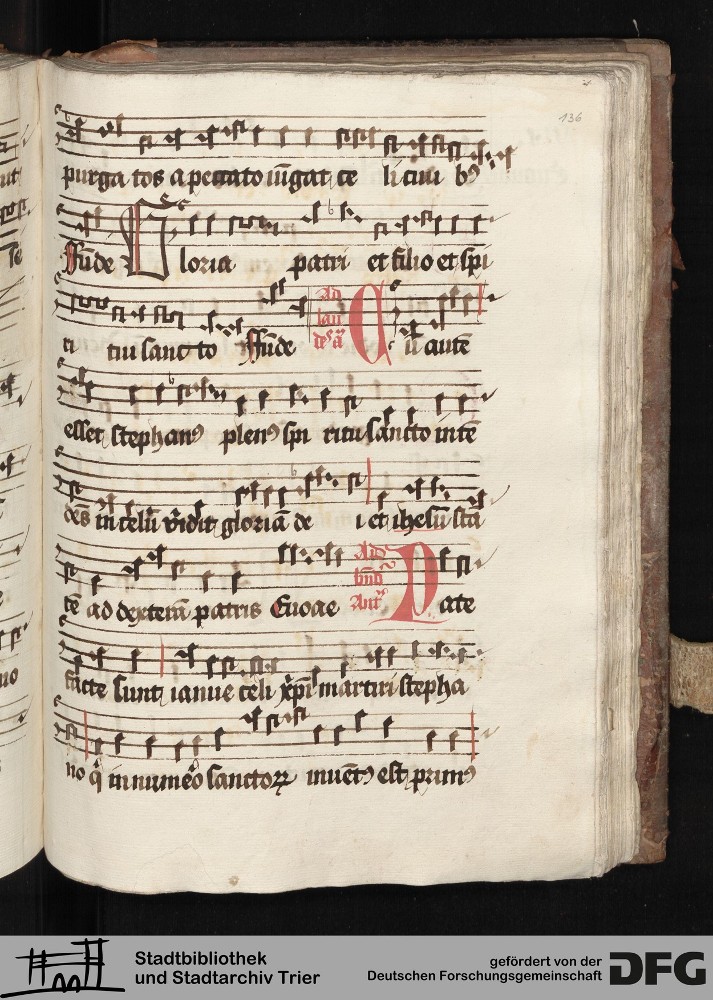 136
purga tos a peccato iūgat ce li ciui bꝰ
ffūde Gloria patri et filio et spi
ri tui sanc to ffūde Ad lau des añ Cū autē
esset stephanꝰ plenꝰ spi ritu sancto intē
dēs in celū vidit gloriā de i et ihesū stā
tē ad dexteram patris Euoae Ad bn̄d Antꝰ Pate
facte sunt ianue celi xp̄i martiri stepha
no q̄ in numero sanctoꝝ inuētꝰ est primꝰ
Stadtbibliothek
und Stadtarchiv Trier
gefördert von der
Deutschen Forschungsgemeinschaft
DFG